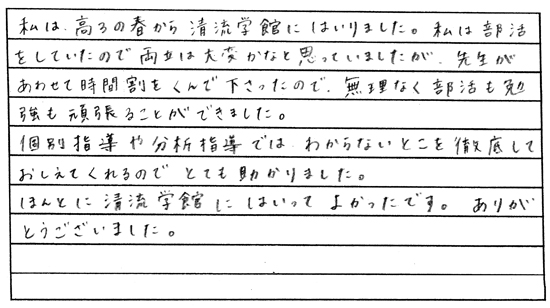 私は、高3の春から清流学館にはいりました。私は部活
をしていたので両立は大変かなと思っていましたが、先生が
あわせて時間割をくんで下さったので、無理なく部活も勉
強も頑張ることができました。
個別指導や分析指導では、わからないとこを徹底して
おしえてくれるのでとても助かりました。
ほんとに清流学館にはいってよかったです。ありが
とうございました。